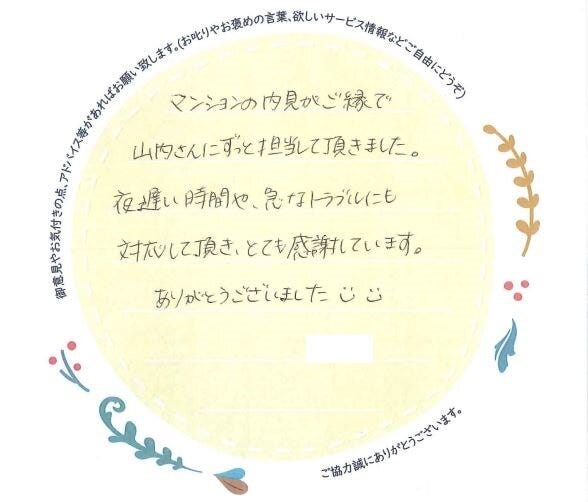 御意見やお気付きの点、アドバイス等があればお願い致します。(お叱りやお褒めの言葉、欲しいサービス情報などご自由にどうぞ)
マンションの内見がご縁で
山内さんにずっと担当して頂きました。
夜遅い時間や、急なトラブルにも
対応して頂き、とても感謝しています。
ありがとうございました
ご協力誠にありがとうございます。